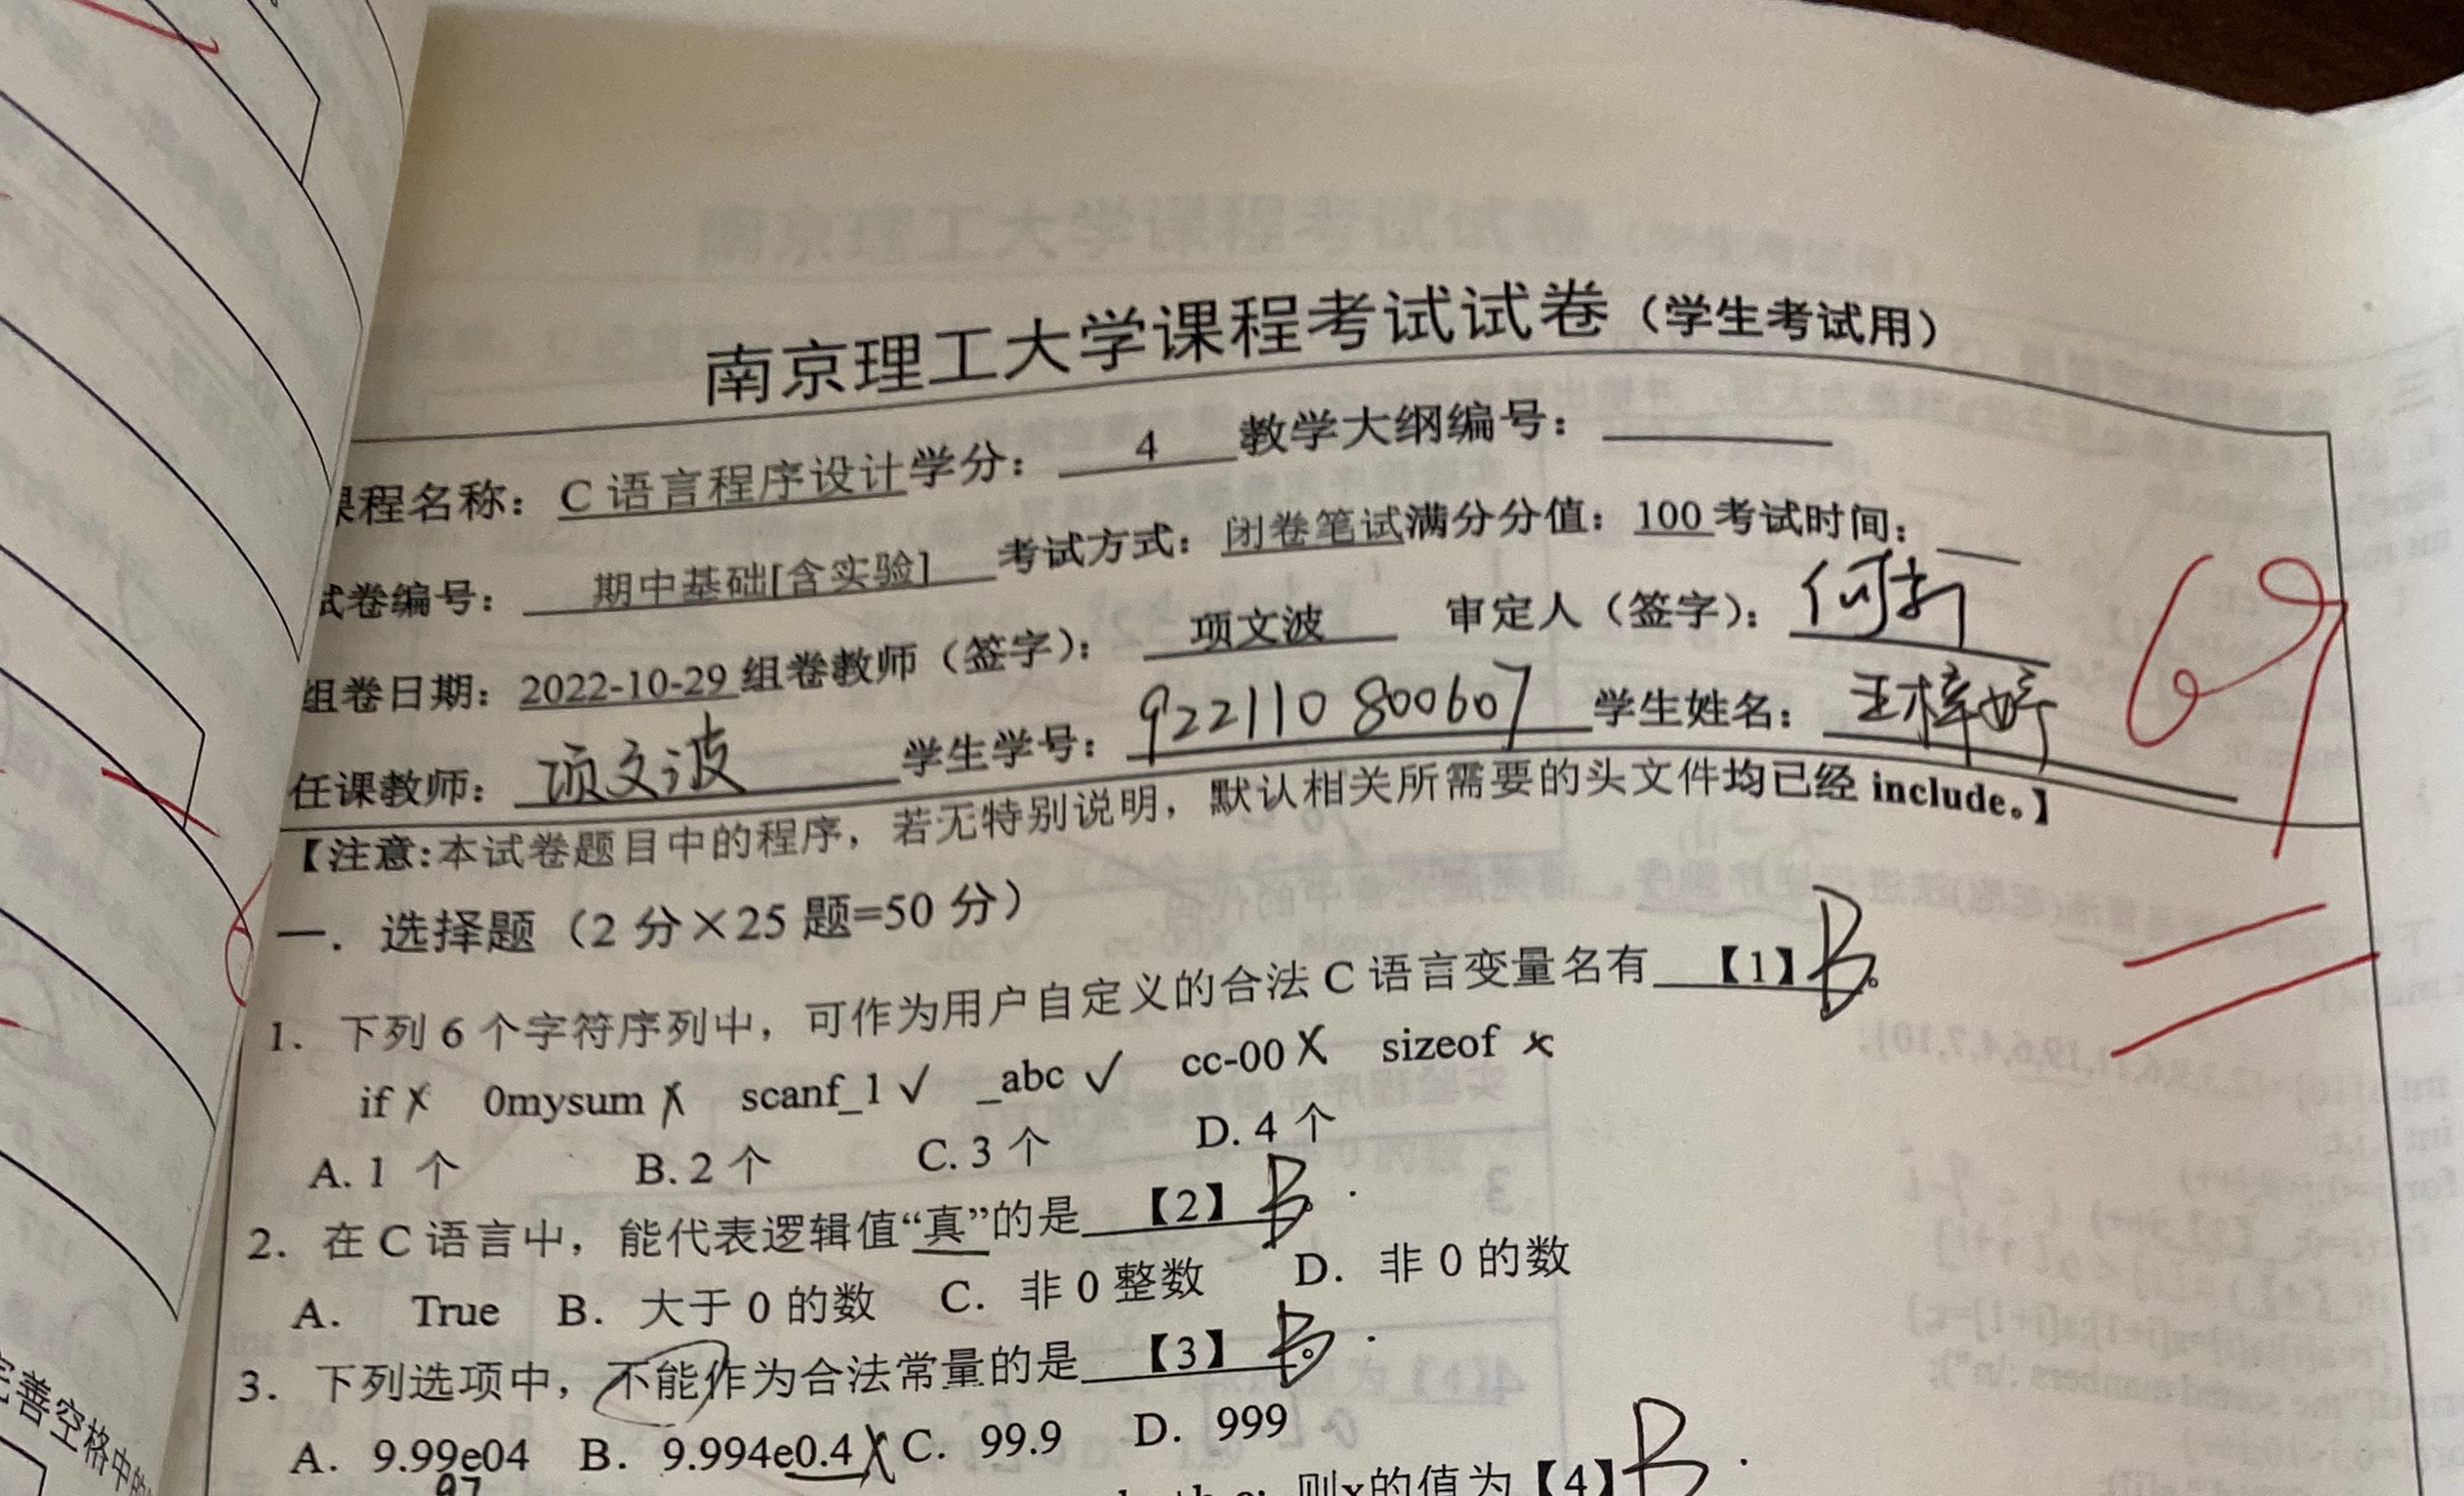 南京理工大学课程考试试卷（学生考试用）
课程名称：C 语言程序设计学分：4 教学大纲编号：
试卷编号：期中基础[含实验] 考试方式：闭卷笔试满分分值：100 考试时间：
组卷日期：2022-10-29 组卷教师（签字）：项文波 审定人（签字）：何新
任课教师：项文波 学生学号：922110800607 学生姓名：王梓婷
69
【注意:本试卷题目中的程序，若无特别说明，默认相关所需要的头文件均已经 include。】
一．选择题（2 分×25 题=50 分）
1．下列 6 个字符序列中，可作为用户自定义的合法 C 语言变量名有 【1】B。
if × 0mysum × scanf_1 √ _abc √ cc-00 × sizeof ×
A. 1 个 B. 2 个 C. 3 个 D. 4 个
2．在 C 语言中，能代表逻辑值“真”的是 【2】B。
A． True B．大于 0 的数 C．非 0 整数 D．非 0 的数
3．下列选项中，不能作为合法常量的是 【3】B。
A．9.99e04 B．9.994e0.4 × C．99.9 D．999
则x的值为【4】B
完善空格中的